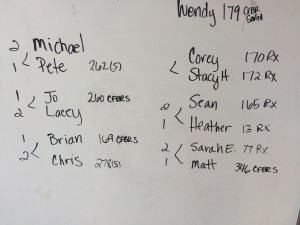 Wendy 179
2 Michael
1 Pete 262(S)
1 Jo 260 CFBRS
2 Laccy
1 Brian 169 CFBRS
2 Chris 278(S)
Corey 170 RX
Stacy H 172 RX
2 Sean 165 RX
1 Heather 13 RX
2 Sarah E. 77 RX
1 Matt 346 CFBRS